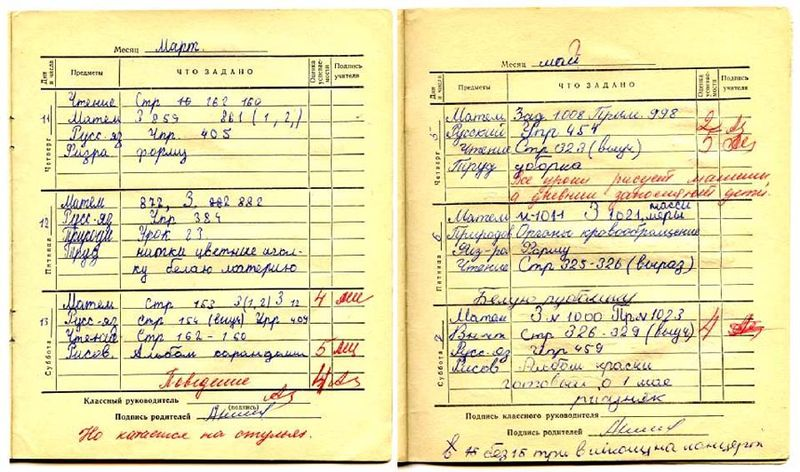 Месяц Март.
Дни и числа Предметы ЧТО ЗАДАНО Оценка успевае-мости Подпись учителя
Четверг 11
Чтение Стр 162 160
Матем З 859 861 (1, 2,)
Русс-яз Упр. 405
Физра форму
Пятница 12
Матем 872, З. 882
Русс-яз Упр 384
Природ Урок 23
Труд нитки цветные игол-
ку белаю мотерию
Суббота 13
Матем Стр 153 З(1,2) З 12 4
Русс-яз Стр 154 (выуч) Упр 409
Чтение Стр 162-160
Рисов. Альбом карандаши 5
Поведение 4
Классный руководитель
(подпись)
Подпись родителей
Но катается на стульях.
Месяц май
Дни и числа Предметы ЧТО ЗАДАНО Оценка успевае-мости Подпись учителя
Четверг 5
Матем Зад 1008 Прим. 998
Русский Упр 457 2
Чтение Стр 323 (выуч) 5
Труд уборка
Все уроки рисует машины
а дневник заполняют дети.
Пятница 6
массы
Матем №1011 З 1021, меры
Природов Органы кровообращение
Физ-ра Форму
Чтение Стр 325-326 (выраз)
Белую рубашку
Суббота
Матем З № 1000 Пр № 1023
Вн-чт Стр 326-329 (выуч) 4
Русс-яз Упр 459
Рисов Альбом краски
готовый о 1 мае
рисуняк
Подпись классного руководителя
Подпись родителей
без 15 три в школу на концерт